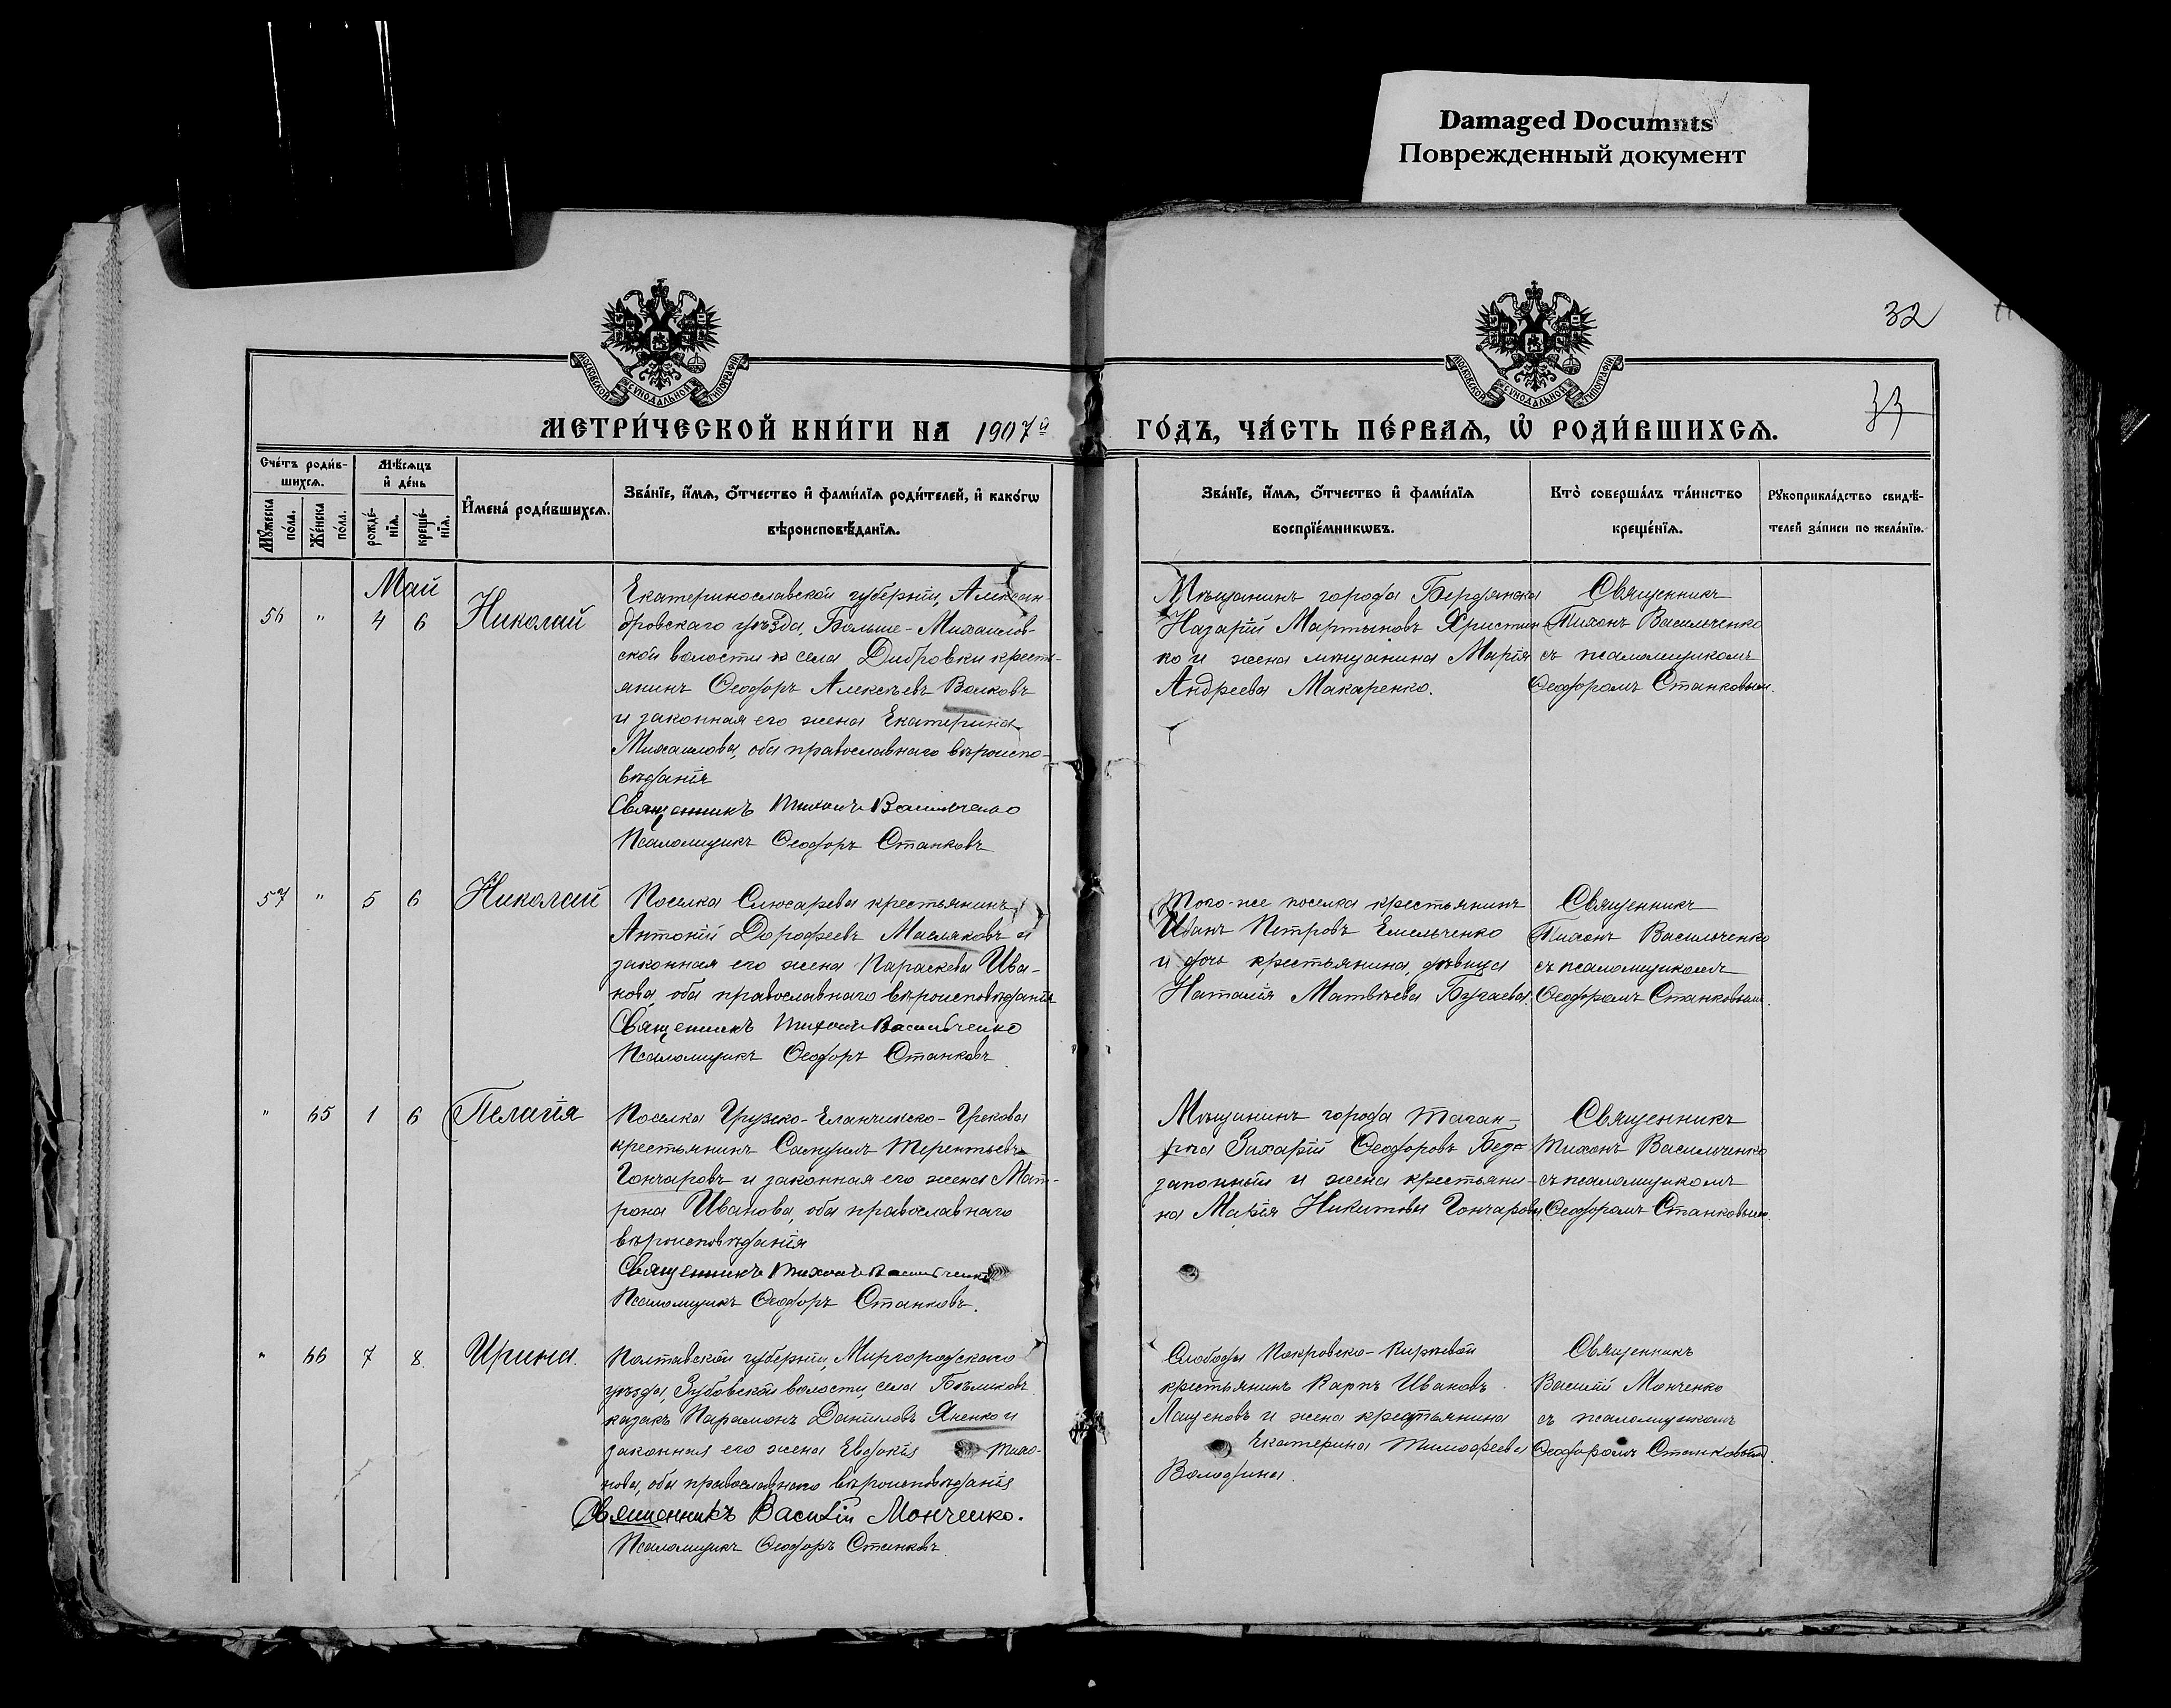 Damaged Documnts
Поврежденный документ
32
33
МОСКОВСКОЙ СУНОДАЛЬНОЙ ТИПОГРАФІИ
МОСКОВСКОЙ СУНОДАЛЬНОЙ ТИПОГРАФІИ
МЕТРИ́ЧЕСКОЙ КНИ́ГИ НА 1907й
ГО́ДЪ, ЧА́СТЬ ПЕ́РВАѦ, Ѡ҆ РОДИ́ВШИХСѦ.
Сче́тъ роди́в-
шихсѧ.
Мѣ́сѧцъ
и҆ де́нь
Мꙋ́жеска по́ла.
Же́нска по́ла.
рожде́-
нїѧ.
креще́-
нїѧ.
И҆мена̀ роди́вшихсѧ.
Зва́нїе, и҆́мѧ, ѻ҆́тчество и҆ фами́лїѧ роди́телей, и҆ како́гѡ
вѣроисповѣ́данїѧ.
Зва́нїе, и҆́мѧ, ѻ҆́тчество и҆ фами́лїѧ
воспрїе́мникѡвъ.
Кто̀ соверша́лъ та́инство
креще́нїѧ.
Рꙋкоприкла́дство свидѣ́-
телей за́писи по жела́нїю.
Май
56 " 4 6 Николай
Екатеринославской губерніи, Алексан-
дровскаго уѣзда, Больше-Михайлов-
ской волости села Дибровки крестья-
янинъ Ѳеодоръ Алексѣевъ Волковъ
и законная его жена Екатерина
Михаилова, оба православнаго вѣроиспо-
вѣданія
Священникъ Тихонъ Васильченко
Псаломщикъ Ѳеодоръ Станковъ
Мѣщанинъ города Бердянска
Назарій Мартыновъ Христин-
ко и жена мѣщанина Марія
Андреева Макаренко.
Священникъ
Тихонъ Васильченко
съ псаломщикомъ
Ѳеодоромъ Станковым.
57 " 5 6 Николай
Поселка Слюсарева крестьянинъ
Антоній Дорофеевъ Масляковъ и
законная его жена Параскева Ива-
нова, оба православнаго вѣроисповѣданія
Священникъ Тихонъ Васильченко
Псаломщикъ Ѳеодоръ Станковъ
Того-же поселка крестьянинъ
Иванъ Петровъ Емельченко
и дочь крестьянина, дѣвица
Наталія Матвѣева Бугаева.
Священникъ
Тихонъ Васильченко
съ псаломщикомъ
Ѳеодоромъ Станковым.
" 65 1 6 Пелагія
Поселка Грузско-Еланчинско-Грекова
крестьянинъ Самуилъ Терентьевъ
Гончаровъ и законная его жена Мат-
рона Иванова, оба православнаго
вѣроисповѣданія
Священникъ Тихонъ Васильченко
Псаломщикъ Ѳеодоръ Станковъ.
Мѣщанинъ города Таган-
рога Захарій Ѳеодоровъ Без-
законный и жена крестьяни-
на Марія Никитова Гончарова.
Священникъ
Тихонъ Васильченко
съ псаломщикомъ
Ѳеодоромъ Станковым.
" 66 7 8. Ирина.
Полтавской губерніи, Миргородскаго
уѣзда, Зубовской волости, села Бѣликовъ
казакъ Парамонъ Даниловъ Яненко и
законная его жена Евдокія Тихо-
нова, оба православнаго вѣроисповѣданія
Священникъ Василій Монченко.
Псаломщикъ Ѳеодоръ Станковъ
Слободы Покровско-Кирѣевой
крестьянинъ Карпъ Ивановъ
Лащеновъ и жена крестьянина
Екатерина Тимофеева
Володина.
Священникъ
Василій Монченко
съ псаломщикомъ
Ѳеодоромъ Станковым.